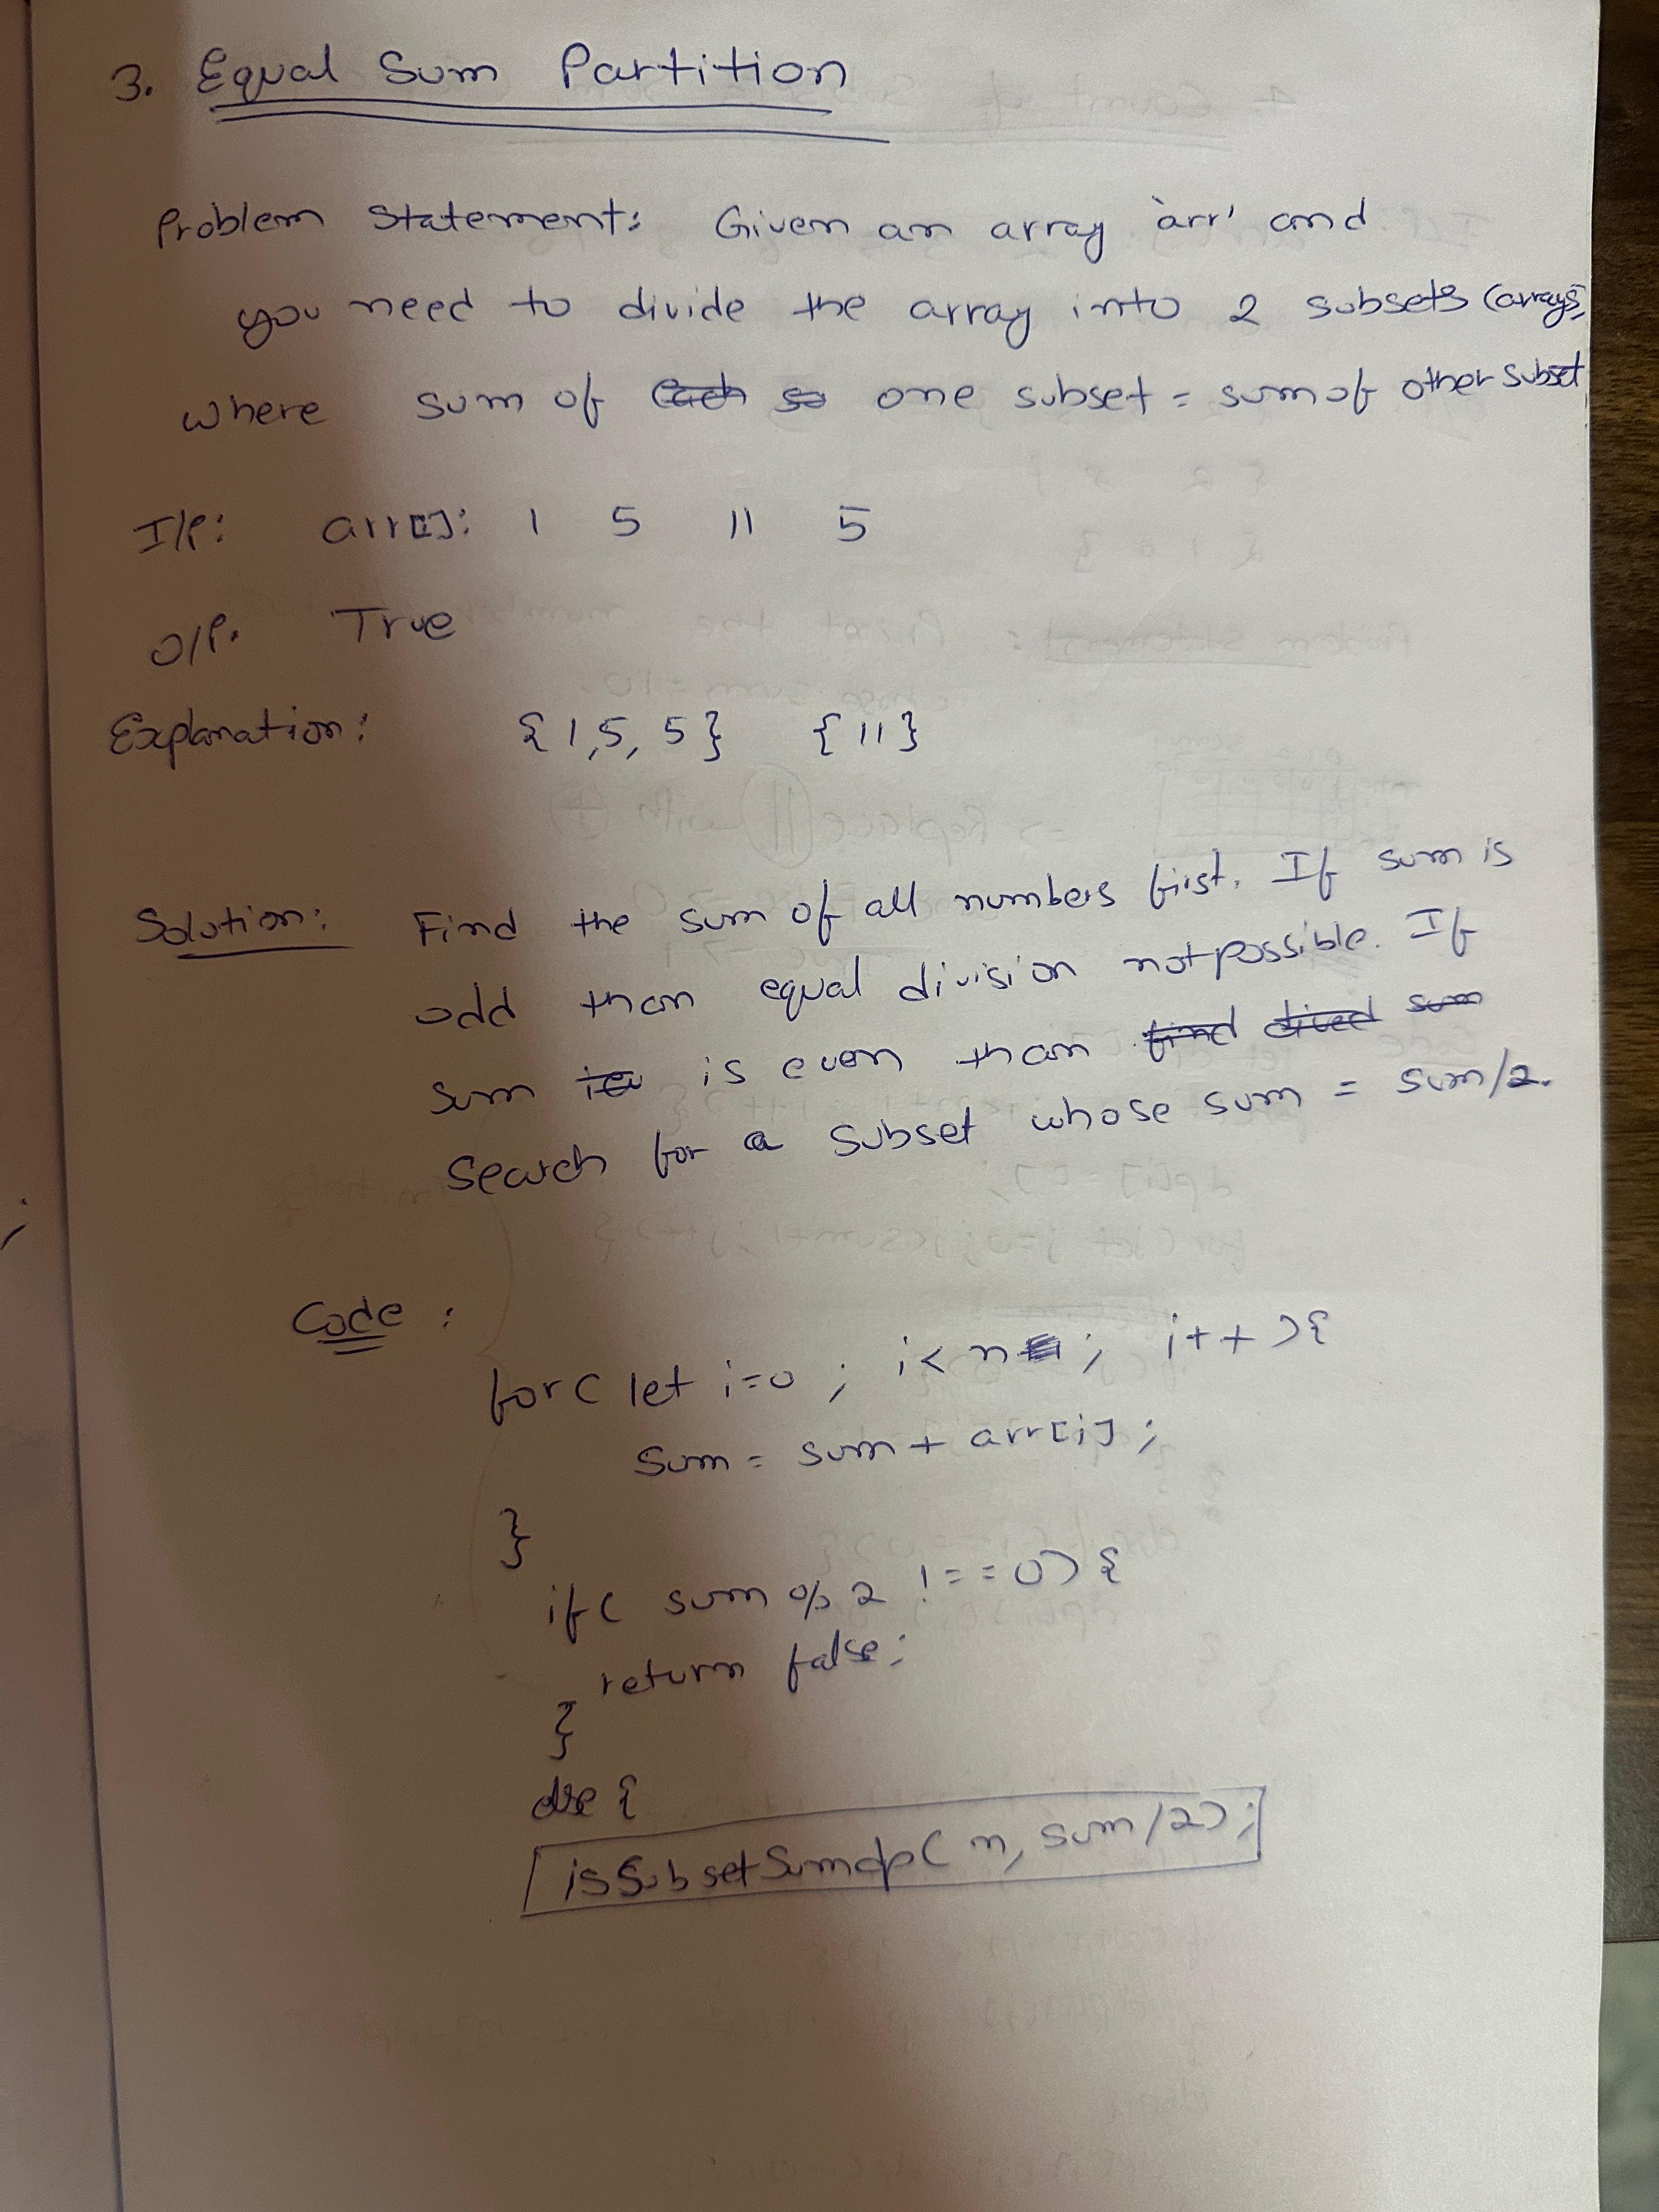 3. Equal Sum Partition
Problem Statement: Given an array 'arr' and
you need to divide the array into 2 subsets (arrays)
where sum of one subset = sum of other subset
I/P: arr[]: 1 5 11 5
O/P. True
Explanation: {1,5, 5} {11}
Solution: Find the sum of all numbers first. If sum is
odd than equal division not possible. If
sum is even than
Search for a subset whose sum = sum/2.
Code :
for( let i=0 ; i< n ; i++ ){
Sum = sum + arr[i] ;
}
if( sum % 2 !==0) {
return false;
}
else {
isSubsetSumdp( n, sum/2);